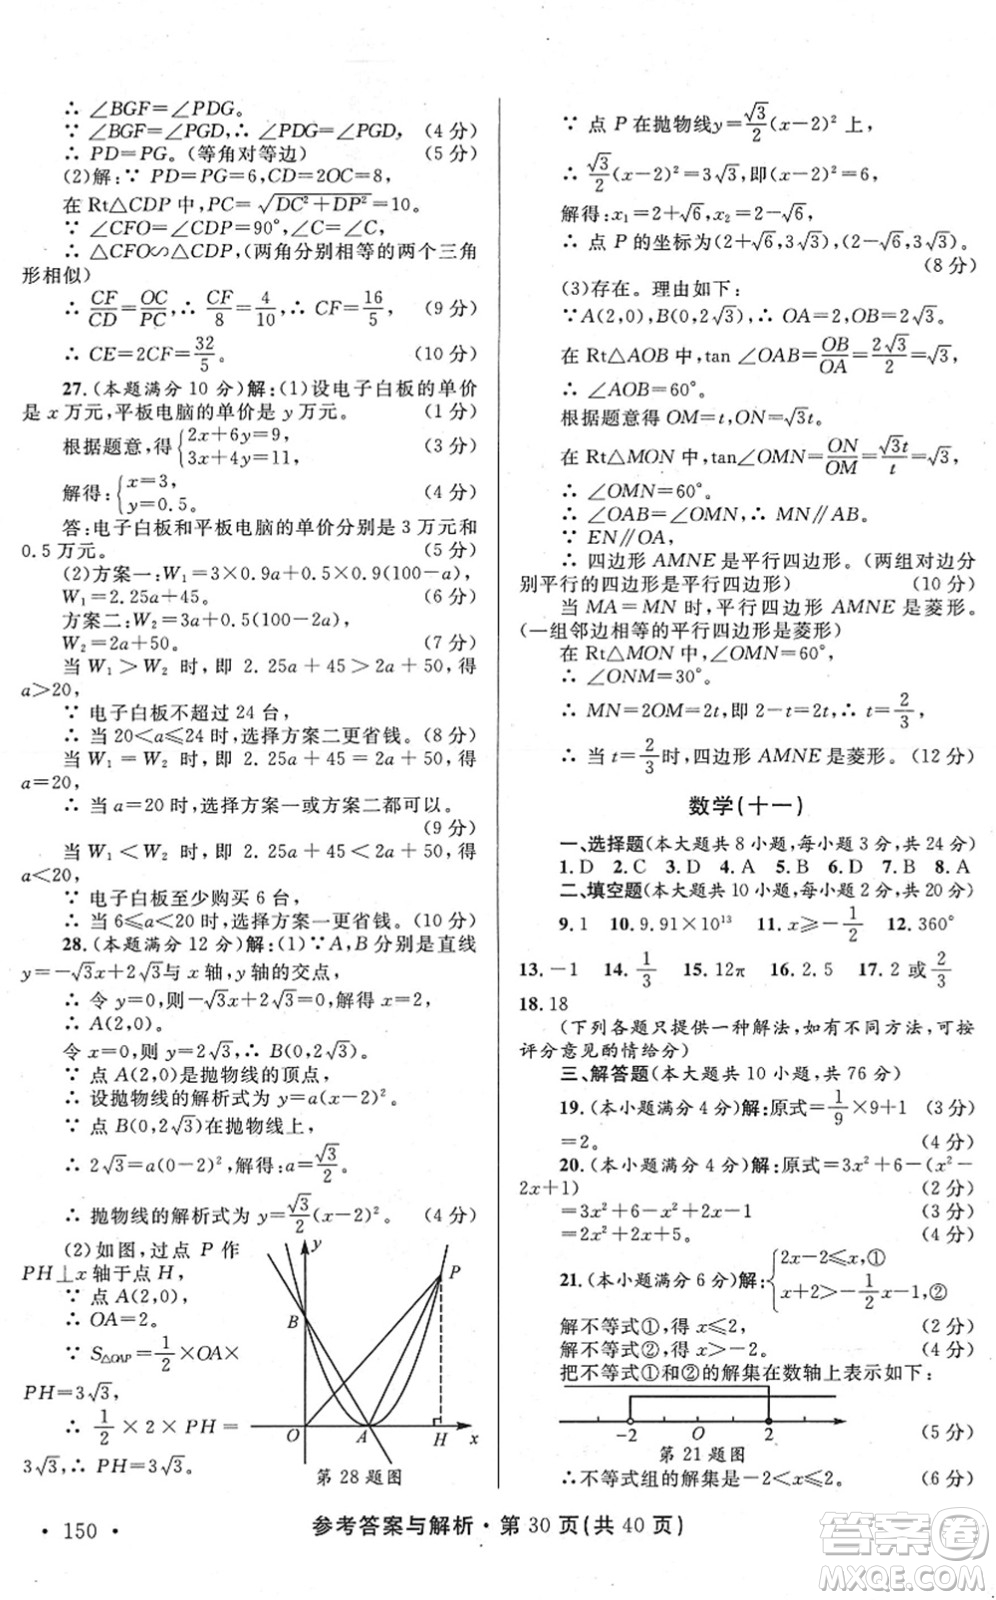 ∴ ∠BGF=∠PDG。
∵ ∠BGF=∠PGD,∴ ∠PDG=∠PGD, (4 分)
∴ PD=PG。(等角对等边) (5 分)
(2)解:∵ PD=PG=6,CD=2OC=8,
在 Rt△CDP 中,PC=√(DC²+DP²)=10。
∵ ∠CFO=∠CDP=90°,∠C=∠C,
∴ △CFO∽△CDP,(两角分别相等的两个三角
形相似)
∴ CF/CD=OC/PC,∴ CF/8=4/10,∴ CF=16/5, (9 分)
∴ CE=2CF=32/5。 (10 分)
27.(本题满分 10 分)解:(1)设电子白板的单价
是 x 万元,平板电脑的单价是 y 万元。 (1 分)
根据题意,得{2x+6y=9, 3x+4y=11, (3 分)
解得:{x=3, y=0.5。 (4 分)
答:电子白板和平板电脑的单价分别是 3 万元和
0.5 万元。 (5 分)
(2)方案一:W₁=3×0.9a+0.5×0.9(100-a),
W₁=2.25a+45。 (6 分)
方案二:W₂=3a+0.5(100-2a),
W₂=2a+50。 (7 分)
当 W₁>W₂ 时,即 2.25a+45>2a+50,得
a>20,
∵ 电子白板不超过 24 台,
∴ 当 20<a≤24 时,方案二更省钱。(8 分)
当 W₁=W₂ 时,即 2.25a+45=2a+50,得
a=20,
∴ 当 a=20 时,选择方案一或方案二都可以。
(9 分)
当 W₁<W₂ 时,即 2.25a+45<2a+50,得
a<20,
∵ 电子白板至少购买 6 台,
∴ 当 6≤a<20 时,选择方案一更省钱。(10 分)
28.(本题满分 12 分)解:(1)∵A,B 分别是直线
y=-√3x+2√3与 x 轴,y 轴的交点,
∴ 令 y=0,则-√3x+2√3=0,解得:x=2,
∴ A(2,0),
令 x=0,则 y=2√3,∴ B(0,2√3),
∵ 点 A(2,0)是抛物线的顶点,
∴ 设抛物线的解析式为 y=a(x-2)²,
∵ 点 B(0,2√3)在抛物线上,
∴ 2√3=a(0-2)²,解得:a=√3/2。
∴ 抛物线的解析式为 y=√3/2(x-2)²。 (4 分)
(2)如图,过点 P 作
PH⊥x 轴于点 H,
∵ 点 A(2,0),
∴ OA=2。
∵ S△OAP=1/2×OA×
PH=3√3,
∴ 1/2×2×PH=
3√3,∴ PH=3√3。
y
P
B
O
A
H
x
第 28 题图
∵ 点 P 在抛物线y=√3/2(x-2)² 上,
∴ √3/2(x-2)²=3√3,即(x-2)²=6,
解得:x₁=2+√6,x₂=2-√6,
∴ 点 P 的坐标为(2+√6,3√3),(2-√6,3√3)。
(8 分)
(3)存在。理由如下:
∵A(2,0),B(0,2√3),∴ OA=2,OB=2√3,
在 Rt△AOB 中,tan ∠OAB=OB/OA=2√3/2=√3,
∴ ∠AOB=60°。
根据题意得 OM=t,ON=√3t。
在 Rt△MON 中,tan∠OMN=ON/OM=√3t/t=√3,
∴ ∠OMN=60°。
∴ ∠OAB=∠OMN,∴ MN∥AB。
∵ EN∥OA,
∴ 四边形 AMNE 是平行四边形。(两组对边分
别平行的四边形是平行四边形) (10 分)
当 MA=MN 时,平行四边形 AMNE 是菱形。
(一组邻边相等的平行四边形是菱形)
在 Rt△MON 中,∠OMN=60°,
∴ ∠ONM=30°。
∴ MN=2OM=2t,即 2-t=2t,∴ t=2/3,
∴ 当 t=2/3时,四边形 AMNE 是菱形。(12 分)
数学(十一)
一、选择题(本大题共 8 小题,每小题 3 分,共 24 分)
1.D 2.C 3.D 4.A 5.B 6.D 7.B 8.A
二、填空题(本大题共 10 小题,每小题 2 分,共 20 分)
9.1 10.9.91×10¹³ 11.x≥-1/2 12.360°
13.-1 14.1/3 15.12π 16.2.5 17.2 或2/3
18.18
(下列各题只提供一种解法,如有不同方法,可按
评分意见酌情给分)
三、解答题(本大题共 10 小题,共 76 分)
19.(本小题满分 4 分)解:原式=1/9×9+1 (3 分)
=2。 (4 分)
20.(本小题满分 4 分)解:原式=3x²+6-(x²-
2x+1) (2 分)
=3x²+6-x²+2x-1 (3 分)
=2x²+2x+5。 (4 分)
21.(本小题满分 6 分)解:{2x-2≤x,① x+2>-1/2x-1,②
解不等式①,得 x≤2, (2 分)
解不等式②,得 x>-2。 (4 分)
把不等式①和②的解集在数轴上表示如下:
-2 0 2 (5 分)
第 21 题图
∴不等式组的解集是-2<x≤2。 (6 分)
• 150 •
参考答案与解析・第 30 页(共 40 页)
答案圈
MXQE.COM